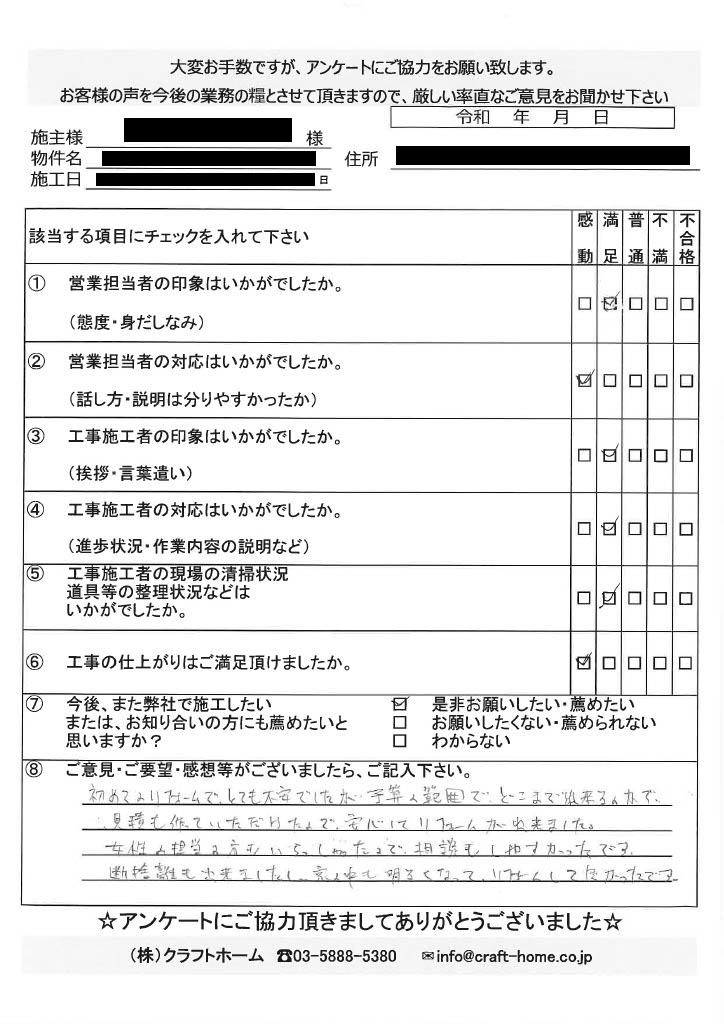 大変お手数ですが、アンケートにご協力をお願い致します。
お客様の声を今後の業務の糧とさせて頂きますので、厳しい率直なご意見をお聞かせ下さい
令和 年 月 日
施主様 様
物件名 住所
施工日 日
該当する項目にチェックを入れて下さい 感動 満足 普通 不満 不合格
① 営業担当者の印象はいかがでしたか。
(態度・身だしなみ) □ ☑ □ □ □
② 営業担当者の対応はいかがでしたか。
(話し方・説明は分りやすかったか) ☑ □ □ □ □
③ 工事施工者の印象はいかがでしたか。
(挨拶・言葉遣い) □ ☑ □ □ □
④ 工事施工者の対応はいかがでしたか。
(進歩状況・作業内容の説明など) □ ☑ □ □ □
⑤ 工事施工者の現場の清掃状況
道具等の整理状況などは □ ☑ □ □ □
いかがでしたか。
⑥ 工事の仕上がりはご満足頂けましたか。 ☑ □ □ □ □
⑦ 今後、また弊社で施工したい ☑ 是非お願いしたい・薦めたい
または、お知り合いの方にも薦めたいと □ お願いしたくない・薦められない
思いますか？ □ わからない
⑧ ご意見・ご要望・感想等がございましたら、ご記入下さい。
初めてのリフォームで、とても不安でしたが、予算の範囲で、どこまで出来るのかで、
見積も作っていただけたので、安心してリフォームが出来ました。
女性の担当の方もいらっしゃったので、相談もしやすかったです。
断捨離も出来ましたし、家の中も明るくなって、リフォームして良かったです。
☆アンケートにご協力頂きましてありがとうございました☆
(株)クラフトホーム ☎03-5888-5380 ✉info@craft-home.co.jp